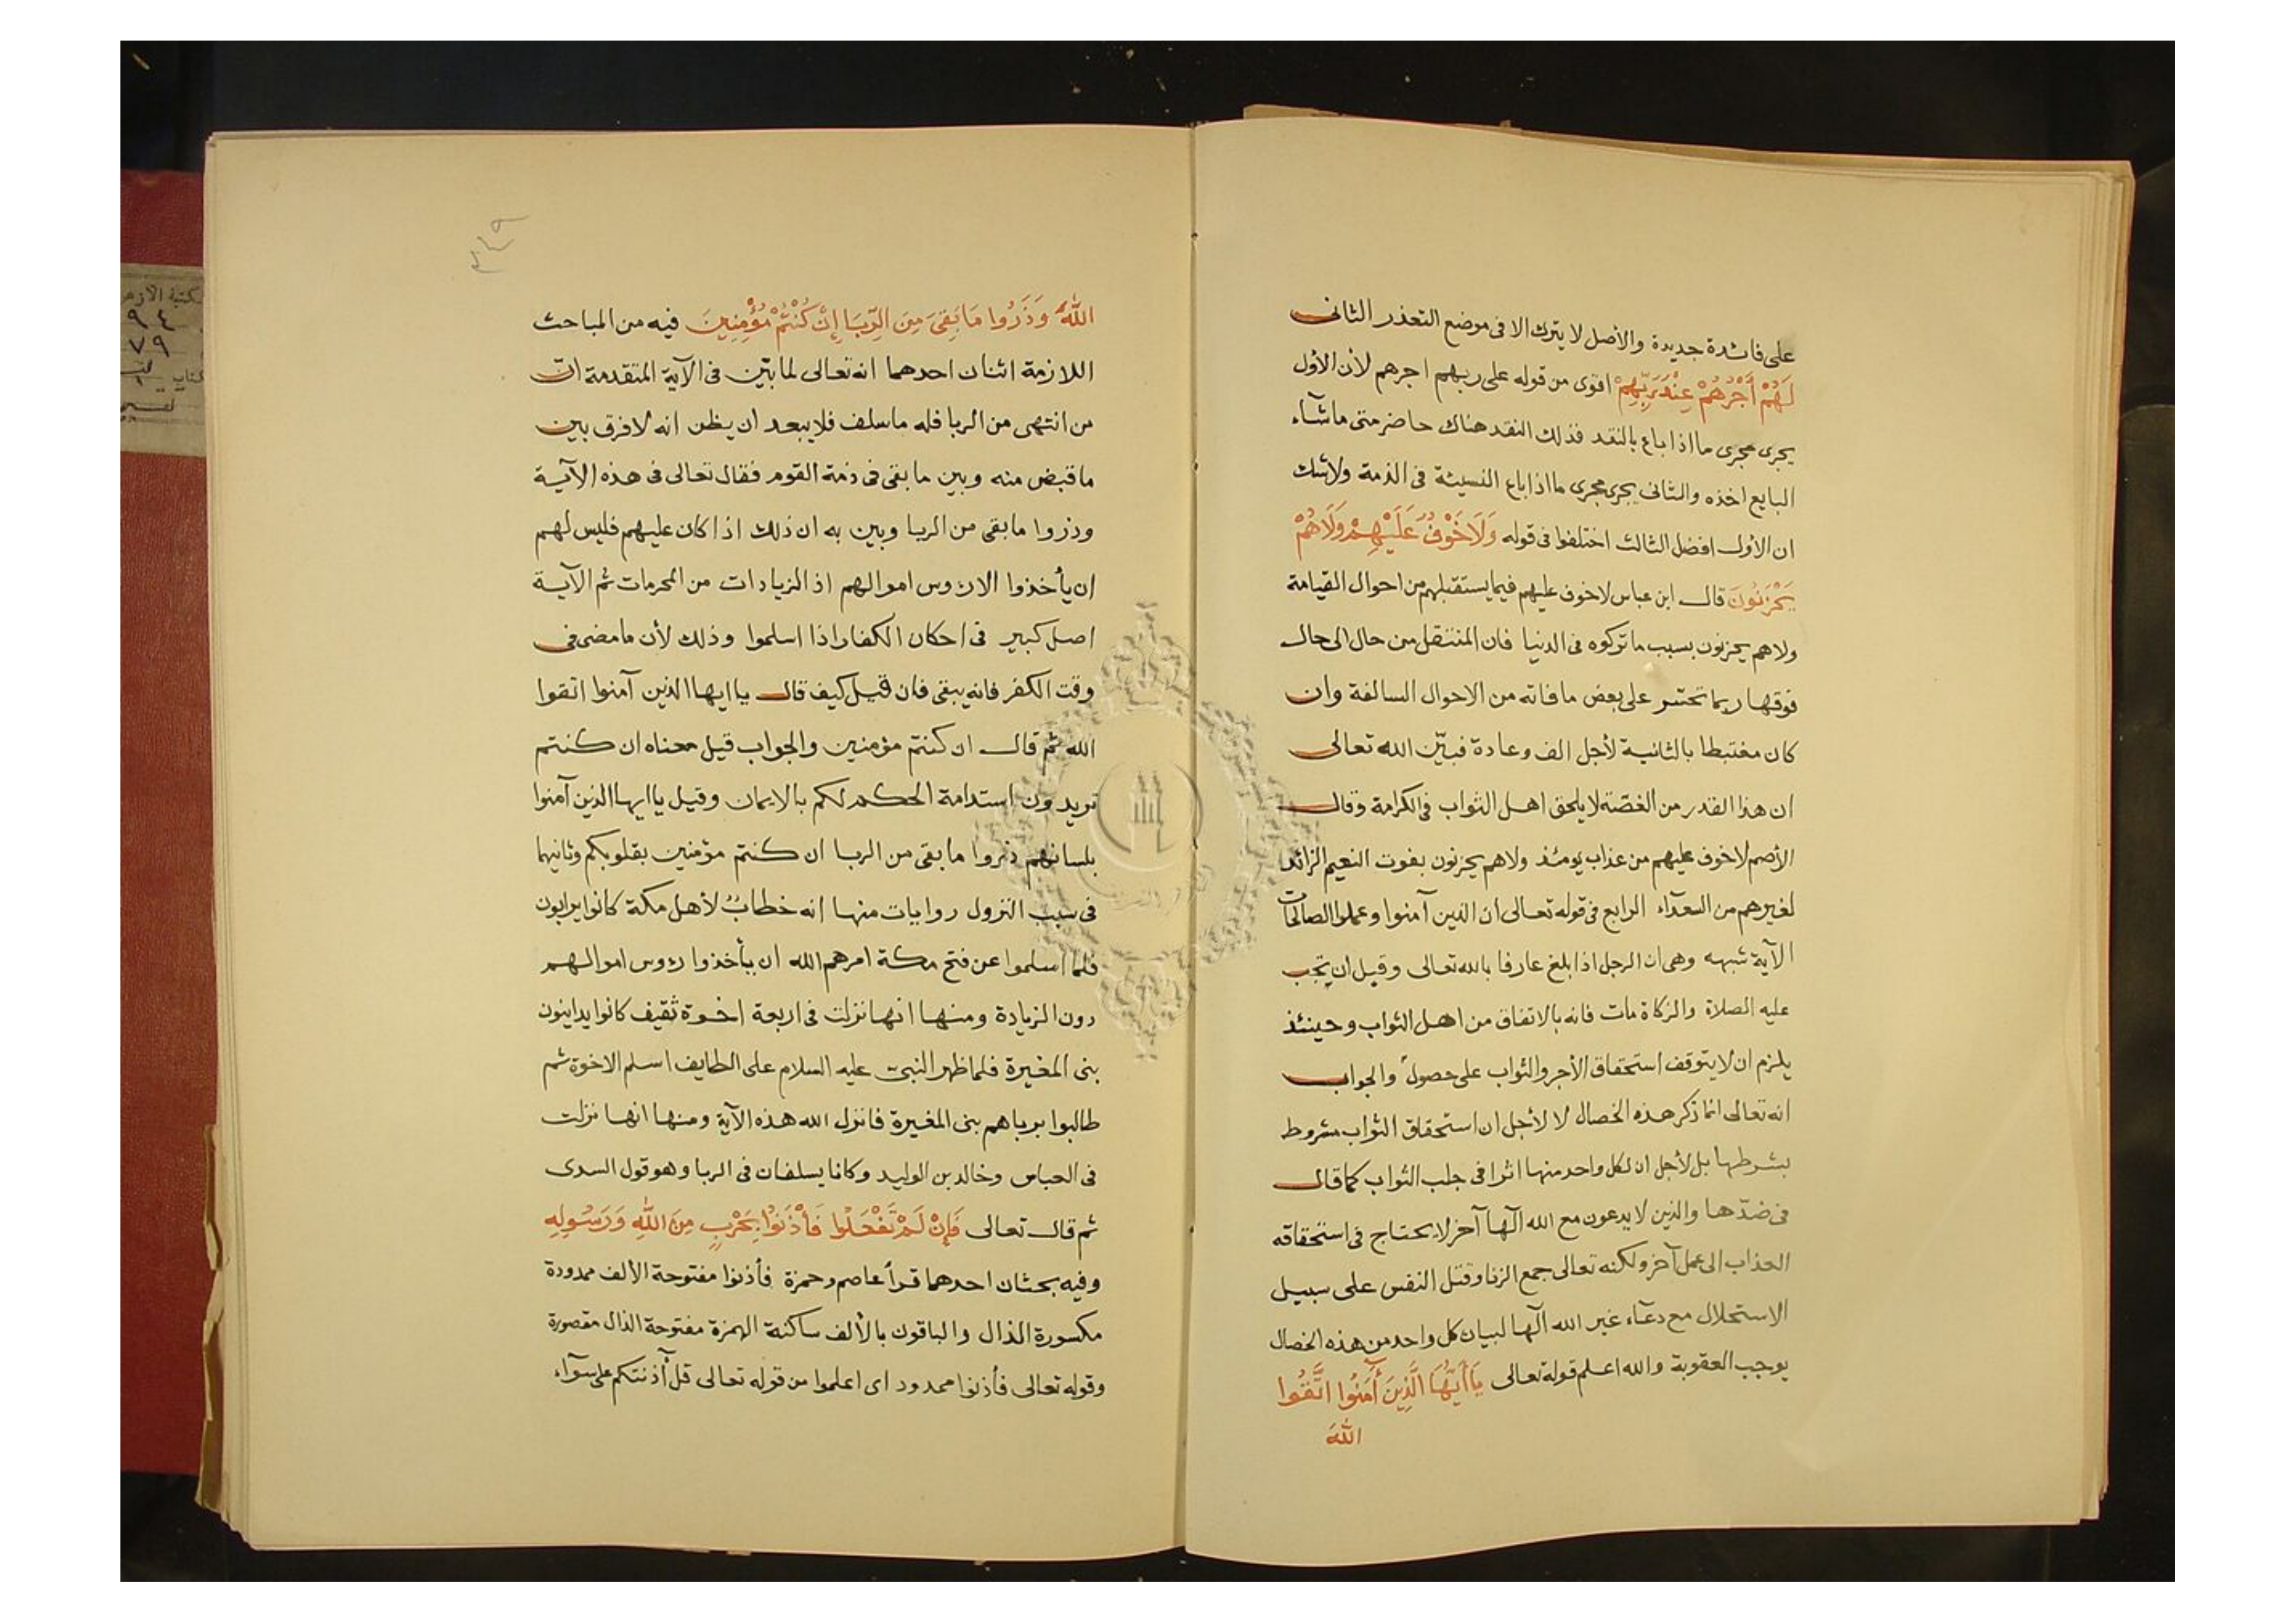 على فائدة جديدة والأصل لا يترك الا فى موضع التعذر الثانى
لَهُمْ أَجْرُهُمْ عِنْدَ رَبِّهِمْ اقوى من قوله على ربهم اجرهم لأن الأول
يجرى مجرى ما اذا باع بالنقد فذلك النقد هناك حاضر متى ماشآء
البايع اخذه والثانى يجرى مجرى ما اذا باع النسيئة فى الذمة ولاشك
ان الأول افضل الثالث اختلفوا فى قوله وَلَا خَوْفُ عَلَيْهِمْ وَلَا هُمْ
يَحْزَنُونَ قال ابن عباس لا خوف عليهم فيما يستقبلهم من احوال القيامة
ولاهم يحزنون بسبب ما تركوه فى الدنيا فان المنتقل من حال الى حال
فوقها ربما تحسّر على بعض ما فاته من الاحوال السالفة وان
كان مغتبطا بالثانية لأجل الف وعادة فبيّن الله تعالى
ان هذا القدر من الغصّة لا يلحق اهل الثواب فى الكرامة وقال
الأصم لا خوف عليهم من عذاب يومئذ ولاهم يحزنون بفوت النعيم الزائد
لغيرهم من السعدآء الرابع فى قوله تعالى ان الذين آمنوا وعملوا الصالحات
الآية شبهه وهى ان الرجل اذا بلغ عارفا بالله تعالى وقيل ان تجب
عليه الصلاة والزكاة مات فانه بالاتفاق من اهل الثواب وحينئذ
يلزم ان لا يتوقف استحقاق الأجر والثواب على حصول والجواب
انه تعالى انما ذكر هذه الخصال لا لأجل ان استحقاق الثواب مشروط
بشرطها بل لأجل ان لكل واحد منها اثرا فى جلب الثواب كما قال
فى ضدّها والذين لا يدعون مع الله الٓها آخر لا يحتاج فى استحقاقه
العذاب الى عمل آخر ولكنه تعالى جمع الزنا وقتل النفس على سبيل
الاستحلال مع دعآء غير الله الٓها لبيان كل واحد من هذه الخصال
يوجب العقوبة والله اعلم قوله تعالى يَاأَيُّهَا الَّذِينَ أٓمَنُوا اتَّقُوا
اللهَ
اللهَ وَذَرُوا مَا بَقِىَ مِنَ الرِّبَا إِنْ كُنْتُمْ مُؤْمِنِينَ فيه من المباحث
اللازمة اثنان احدهما انه تعالى لما بيّن فى الآية المتقدمة انّ
من انتهى من الربا فله ماسلف فلا يبعد ان يظن انه لا فرق بين
ما قبض منه وبين ما بقى فى ذمة القوم فقال تعالى فى هذه الآية
وذروا ما بقى من الربا وبين به ان ذلك اذا كان عليهم فليس لهم
ان يأخذوا الا رؤس اموالهم اذ الزيادات من المحرمات ثم الآية
اصل كبير فى احكان الكفار اذا اسلموا وذلك لأن ما مضى فى
وقت الكفر فانه يبقى فان قيل كيف قال ياايها الذين آمنوا اتقوا
الله ثم قال ان كنتم مؤمنين والجواب قيل معناه ان كنتم
تريدون استدامة الحكم لكم بالايمان وقيل ياايها الذين آمنوا
بلسانهم ذروا ما بقى من الربا ان كنتم مؤمنين بقلوبكم وثانيهما
فى سبب النزول روايات منها انه خطابُ لأهل مكة كانوا يرابون
فلما اسلموا عن فتح مكة امرهم الله ان يأخذوا رؤس اموالهم
دون الزيادة ومنها انها نزلت فى اربعة اخوة ثقيف كانوا يداينون
بنى المغيرة فلما ظهر النبى عليه السلام على الطايف اسلم الاخوة ثم
طالبوا برباهم بنى المغيرة فانزل الله هذه الآية ومنها انها نزلت
فى العباس وخالد بن الوليد وكانا يسلفان فى الربا وهو قول السدى
ثم قال تعالى فَإِنْ لَمْ تَفْعَلُوا فَأْذَنُوا بِحَرْبٍ مِنَ اللهِ وَرَسُولِهِ
وفيه بحثان احدهما قرأ عاصم وحمزة فأذنوا مفتوحة الألف ممدودة
مكسورة الذال والباقون بالألف ساكنة الهمزة مفتوحة الذال مقصورة
وقوله تعالى فأذنوا ممدود اى اعلموا من قوله تعالى قل آذنتكم على سوآء